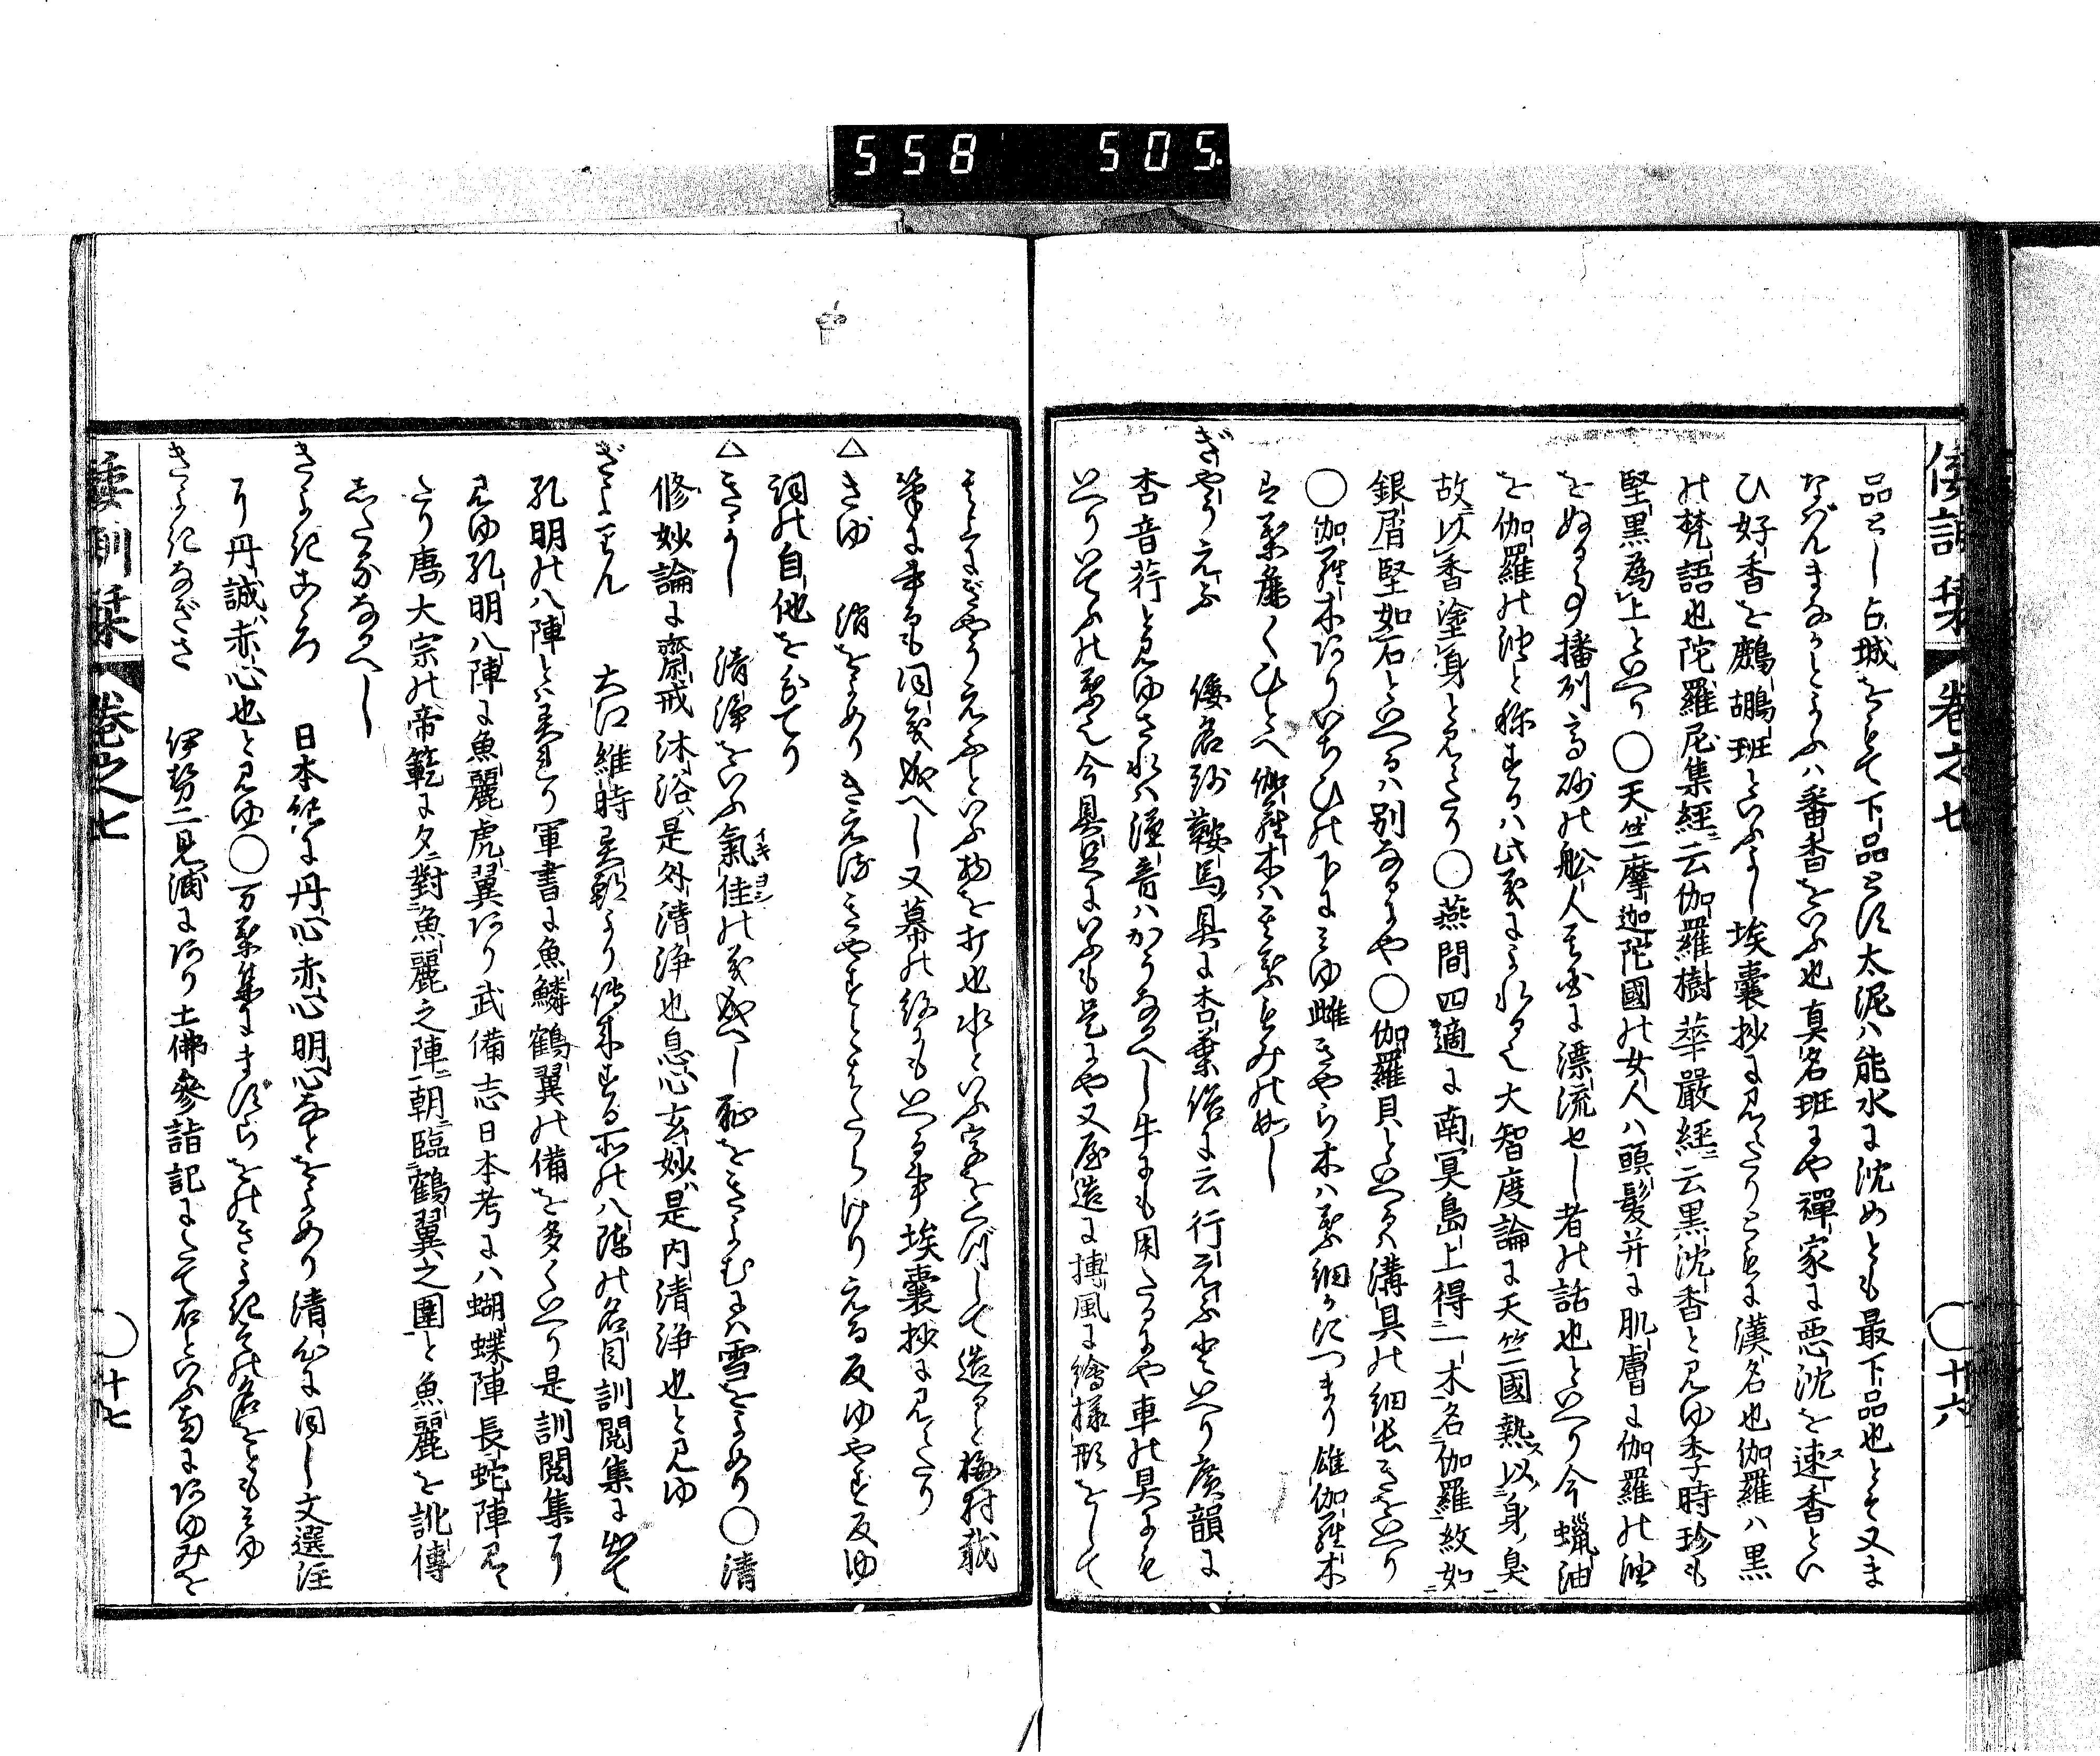 558 505.
倭訓栞 卷之七 〇十六
品とし占城をもて下品とす太泥ハ能水に沈めとも最下品也とそ又ま
なばんまなかとよふハ番香をいふ也真名班にや禪家に悪沈を速香とい
ひ好香を鷓鴣班といふよし埃囊抄に見えたりともに漢名也伽羅ハ黒
の梵語也陀羅尼集経ニ云伽羅樹華嚴経ニ云黒沈香と見ゆ李時珍も
堅黒為上といへり〇天竺摩迦陀國の女人ハ頭髪并に肌膚に伽羅の油
をぬる事播列高砂の舩人其國に漂流せし者の話也といへり今蠟油
を伽羅の油と称するハ此義によれる也大智度論に天竺國熱ス以ニ身臭
故以香塗身と見えたり〇燕間四適に南冥島上得一木名伽羅紋如
銀屑堅如石といへるハ別なるにや〇伽羅貝といへるハ溝貝の細長きをいへり
〇伽羅木ありいちひの下にみゆ雌きやら木ハ葉細かにつまり雄伽羅木
ハ葉麁くひとへ伽羅木ハ其葉もみの如し
ぎやうえふ 倭名鈔鞍馬具に杏葉俗に云行えふ也といへり廣韻に
杏音荇と見ゆされハ漢音ハかうなるへし牛にも用たるにや車の具にも
いへりいてふの葉也今具足にいふも是にや又屋造に搏風に繪様形をして
其上にぎやうえふといふ物を打也水といふ字をくづして造ると梅村載
筆に車るも同義成へし又幕の紋にもいへる事埃囊抄に見えたり
△きゆ 消をよめりきえはきやすとはたらけりえる反ゆやす反ゆ
詞の自他をわてり
△きよし 清浄をいふ氣佳の義成へし恥をきよむるハ雪をよめり〇清
イキヨシ
修妙論に齋戒沐浴是外清浄也息心玄妙是内清浄也と見ゆ
ぎよりん 大江維時異朝より傳来する所の八陣の名目訓閲集に出て
孔明の八陣とハ異れり軍書に魚鱗鶴翼の備を多くいへり是訓閲集に
見ゆ孔明八陣に魚麗虎翼あり武備志日本考にハ蝴蝶陣長蛇陣見え
たり唐大宗の帝範に夕對魚麗之陣朝臨鶴翼之圍と魚麗を訛傳
したるなるへし
きよきこころ 日本紀に丹心赤心明心なとをよめり清心に同し文選注
に丹誠赤心也と見ゆ〇万葉集にますらをのきよきその名をともみゆ
きよきなぎさ 伊勢二見浦にあり土佛參詣記にたて石といふ南にあゆみを
倭訓栞 卷之七 〇十七